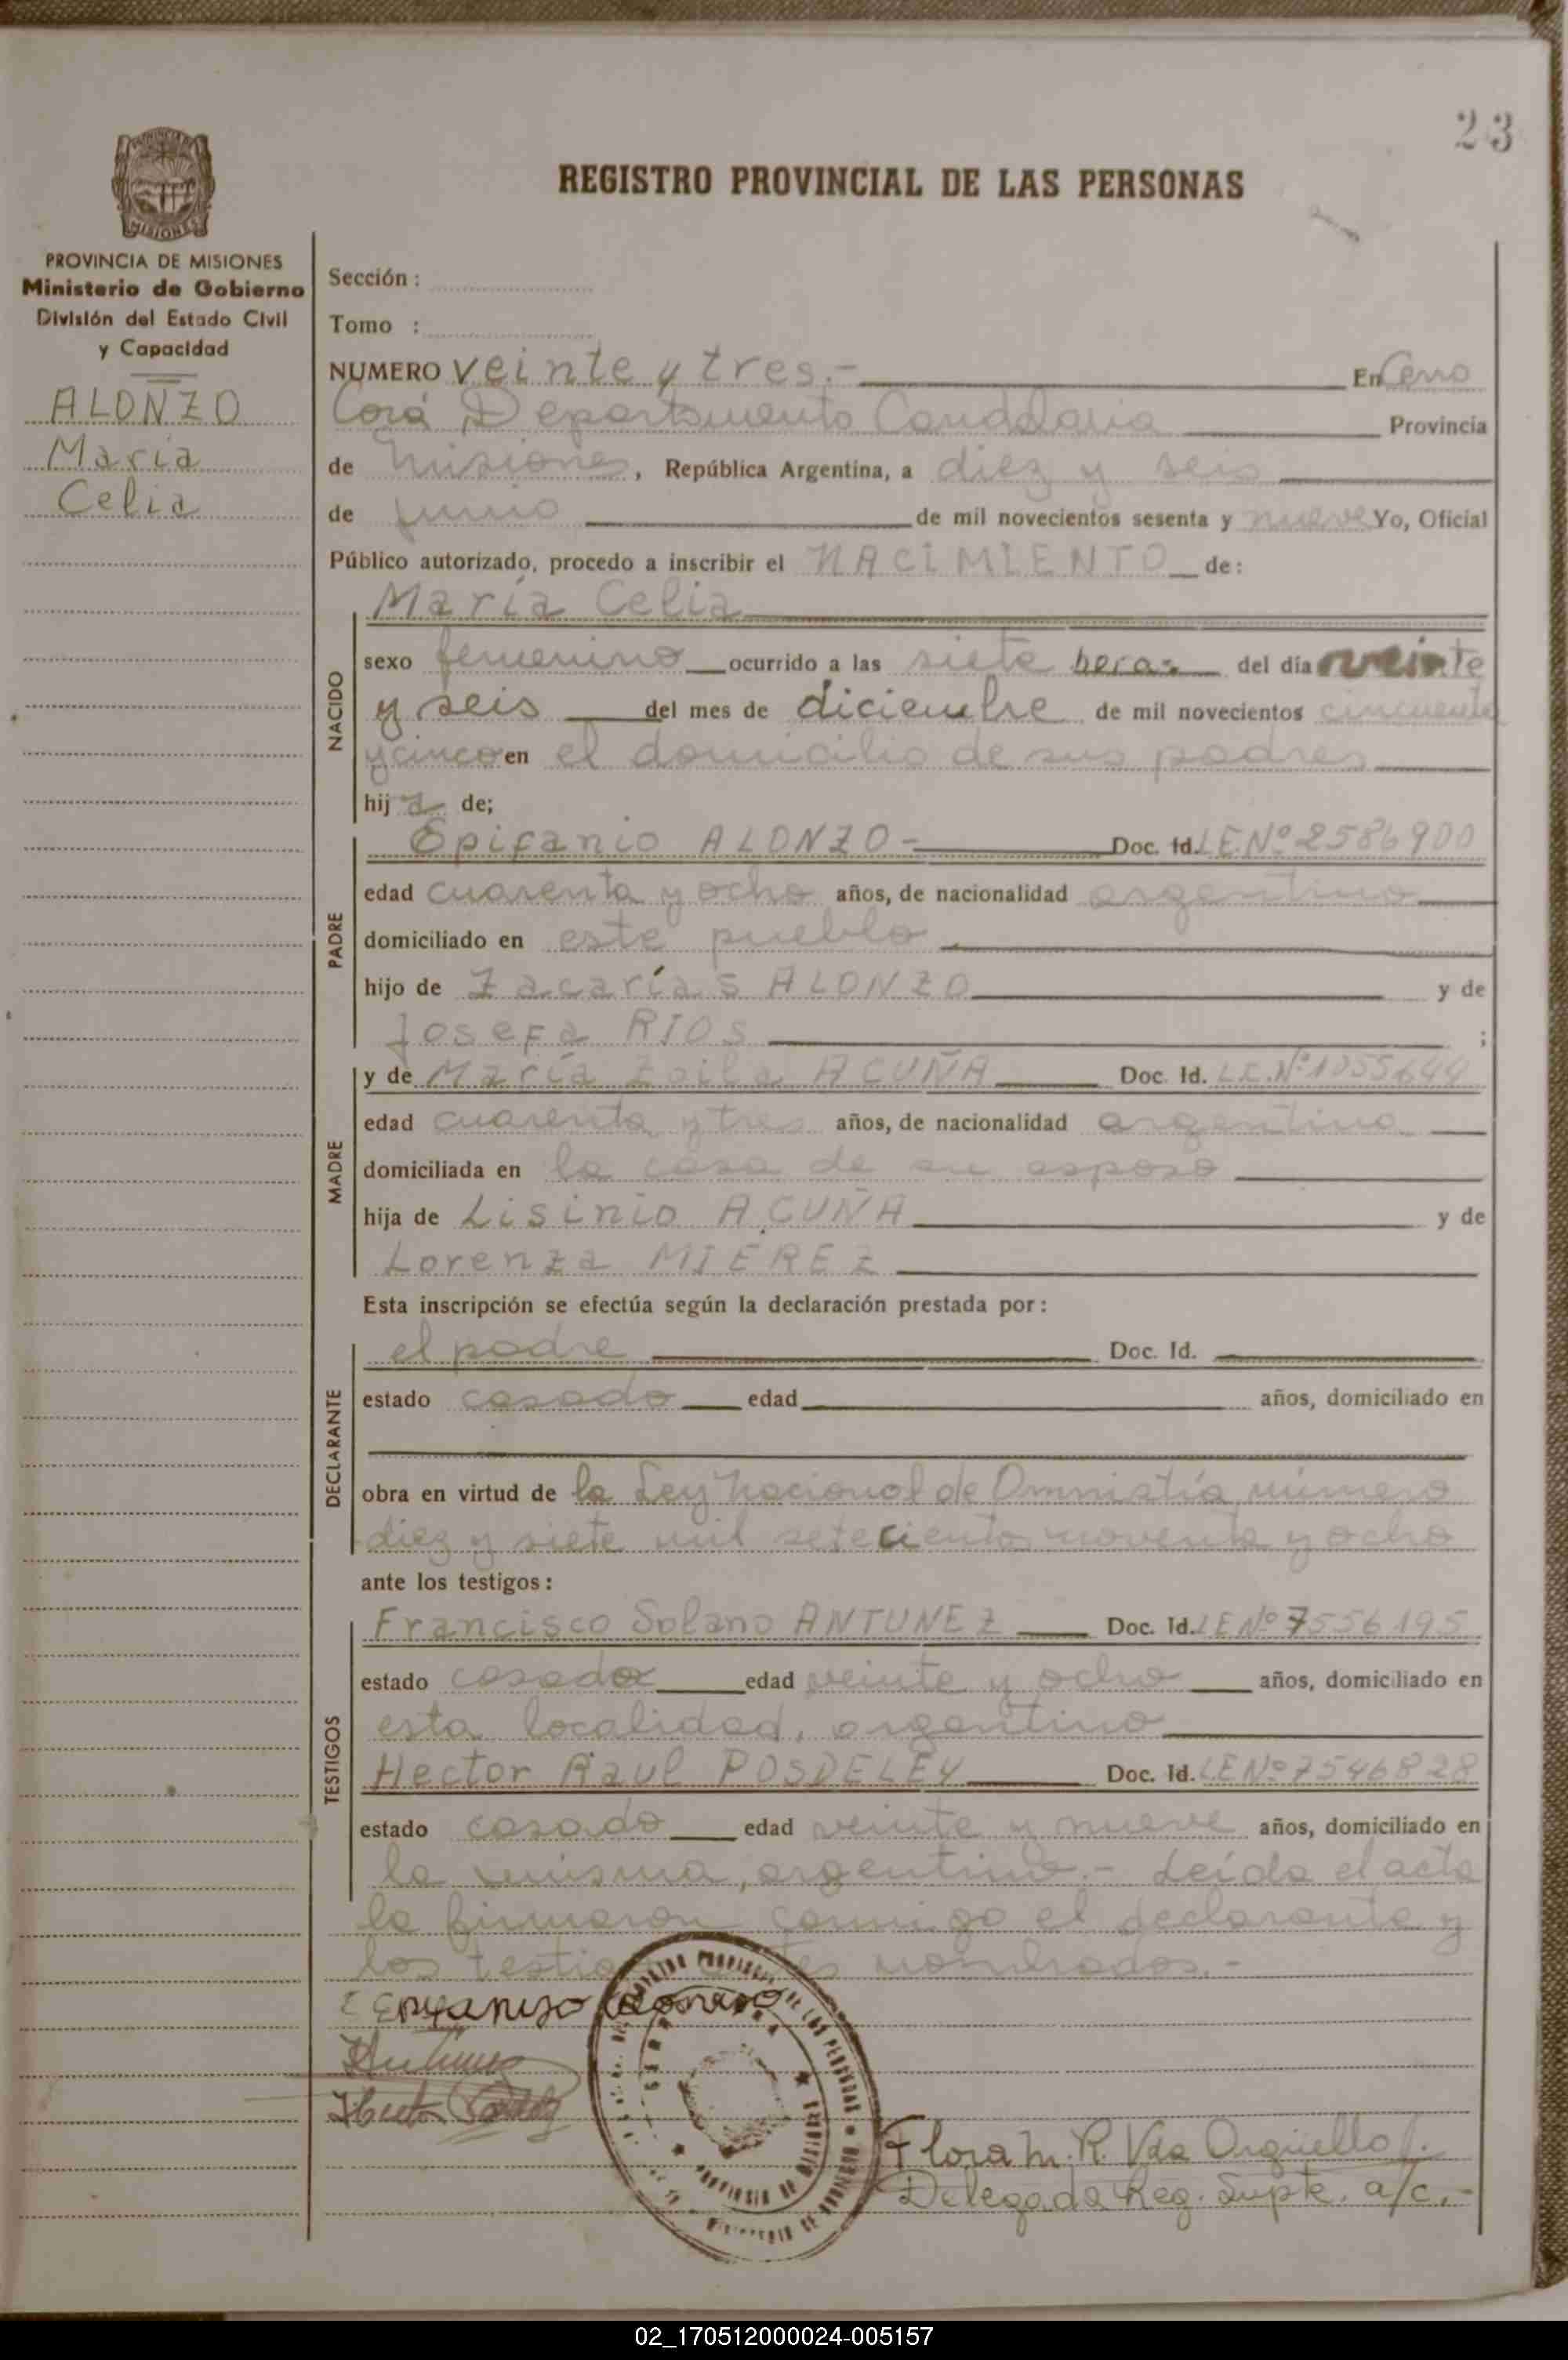 23
REGISTRO PROVINCIAL DE LAS PERSONAS
MISIONES
PROVINCIA DE MISIONES
Ministerio de Gobierno
División del Estado Civil
y Capacidad
ALONZO
María
Celia
Sección :
Tomo :
NUMERO veinte y tres.- En Cerro
Corá Departamento Candelaria Provincia
de Misiones, República Argentina, a diez y seis
de junio de mil novecientos sesenta y nueve Yo, Oficial
Público autorizado, procedo a inscribir el NACIMIENTO de:
NACIDO
María Celia
sexo femenino ocurrido a las siete horas del día veinte
y seis del mes de diciembre de mil novecientos cincuenta
y cinco en el domicilio de sus padres
hija de;
PADRE
Epifanio ALONZO- Doc. Id. LE.Nº 2586900
edad cuarenta y ocho años, de nacionalidad argentino
domiciliado en este pueblo
hijo de Zacarías ALONZO y de
Josefa RIOS ;
MADRE
y de María Zoila ACUÑA Doc. Id. L.E.Nº
edad cuarenta y tres años, de nacionalidad argentina
domiciliada en la casa de su esposo
hija de Lisinio ACUÑA y de
Lorenza MIEREZ
Esta inscripción se efectúa según la declaración prestada por:
DECLARANTE
el padre Doc. Id.
estado casado edad años, domiciliado en
obra en virtud de la Ley Nacional de Amnistía número
diez y siete mil setecientos noventa y ocho
ante los testigos:
TESTIGOS
Francisco Solano ANTUNEZ Doc. Id. LE Nº 7556195
estado casado edad veinte y ocho años, domiciliado en
esta localidad, argentino
Hector Raul POSDELEY Doc. Id. LE Nº 7546828
estado casado edad veinte y nueve años, domiciliado en
la misma, argentino.- Leída el acta
la firmaron conmigo el declarante y
los nombrados.-
Flora M. R. Vda Orgüello
Delegada Reg. Supte. a/c.-
02_170512000024-005157